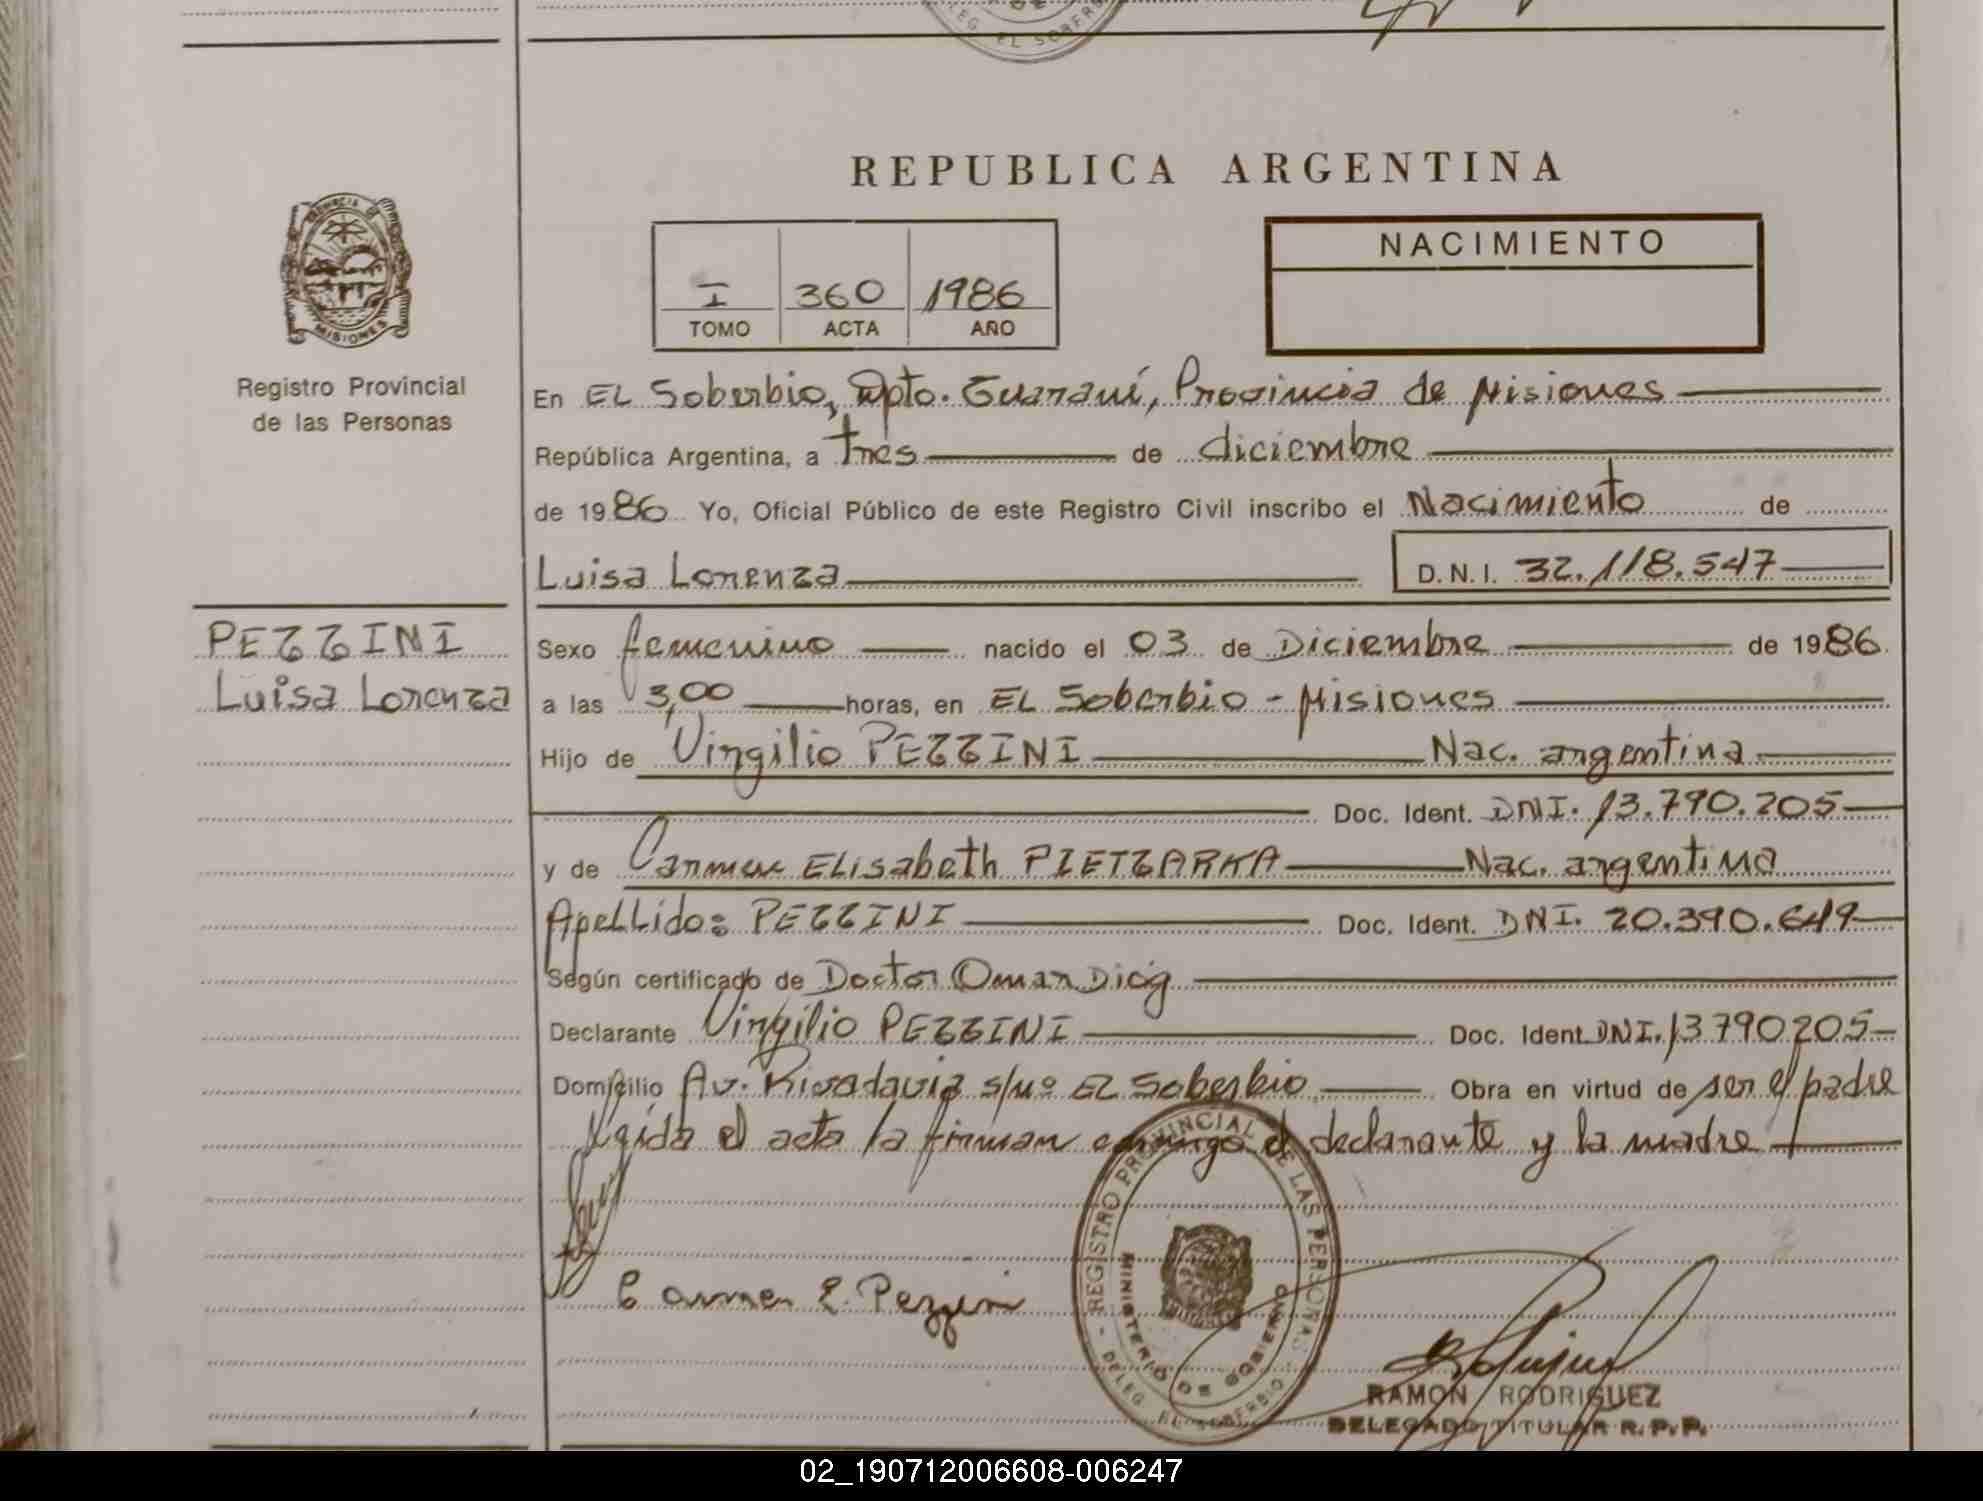 DELEG. EL SOBERBIO
REPUBLICA ARGENTINA
PROVINCIA DE
MISIONES
Registro Provincial
de las Personas
I 360 1986
TOMO ACTA AÑO
NACIMIENTO
En EL Soberbio, Dpto. Guaraní, Provincia de Misiones
República Argentina, a tres de diciembre
de 1986 Yo, Oficial Público de este Registro Civil inscribo el Nacimiento de
Luisa Lorenza D.N.I. 32.118.547
PEZZINI
Luisa Lorenza
Sexo femenino nacido el 03 de Diciembre de 1986
a las 3,00 horas, en EL Soberbio - Misiones
Hijo de Virgilio PEZZINI Nac. argentina
Doc. Ident. DNI. 13.790.205
y de Carmen ELisabeth PIETZARKA Nac. argentina
Apellido: PEZZINI Doc. Ident. DNI. 20.390.649
Según certificado de Doctor Omar Diog
Declarante Virgilio PEZZINI Doc. Ident. DNI. 13790205
Domicilio Av. Rivadavia s/nº EL Soberbio Obra en virtud de ser el padre
Leída el acta la firman conmigo el declarante y la madre
Carmen E. Pezzini
REGISTRO PROVINCIAL DE LAS PERSONAS
MINISTERIO DE GOBIERNO
DELEG. EL SOBERBIO
RAMON RODRIGUEZ
DELEGADO TITULAR R.P.P.
02_190712006608-006247